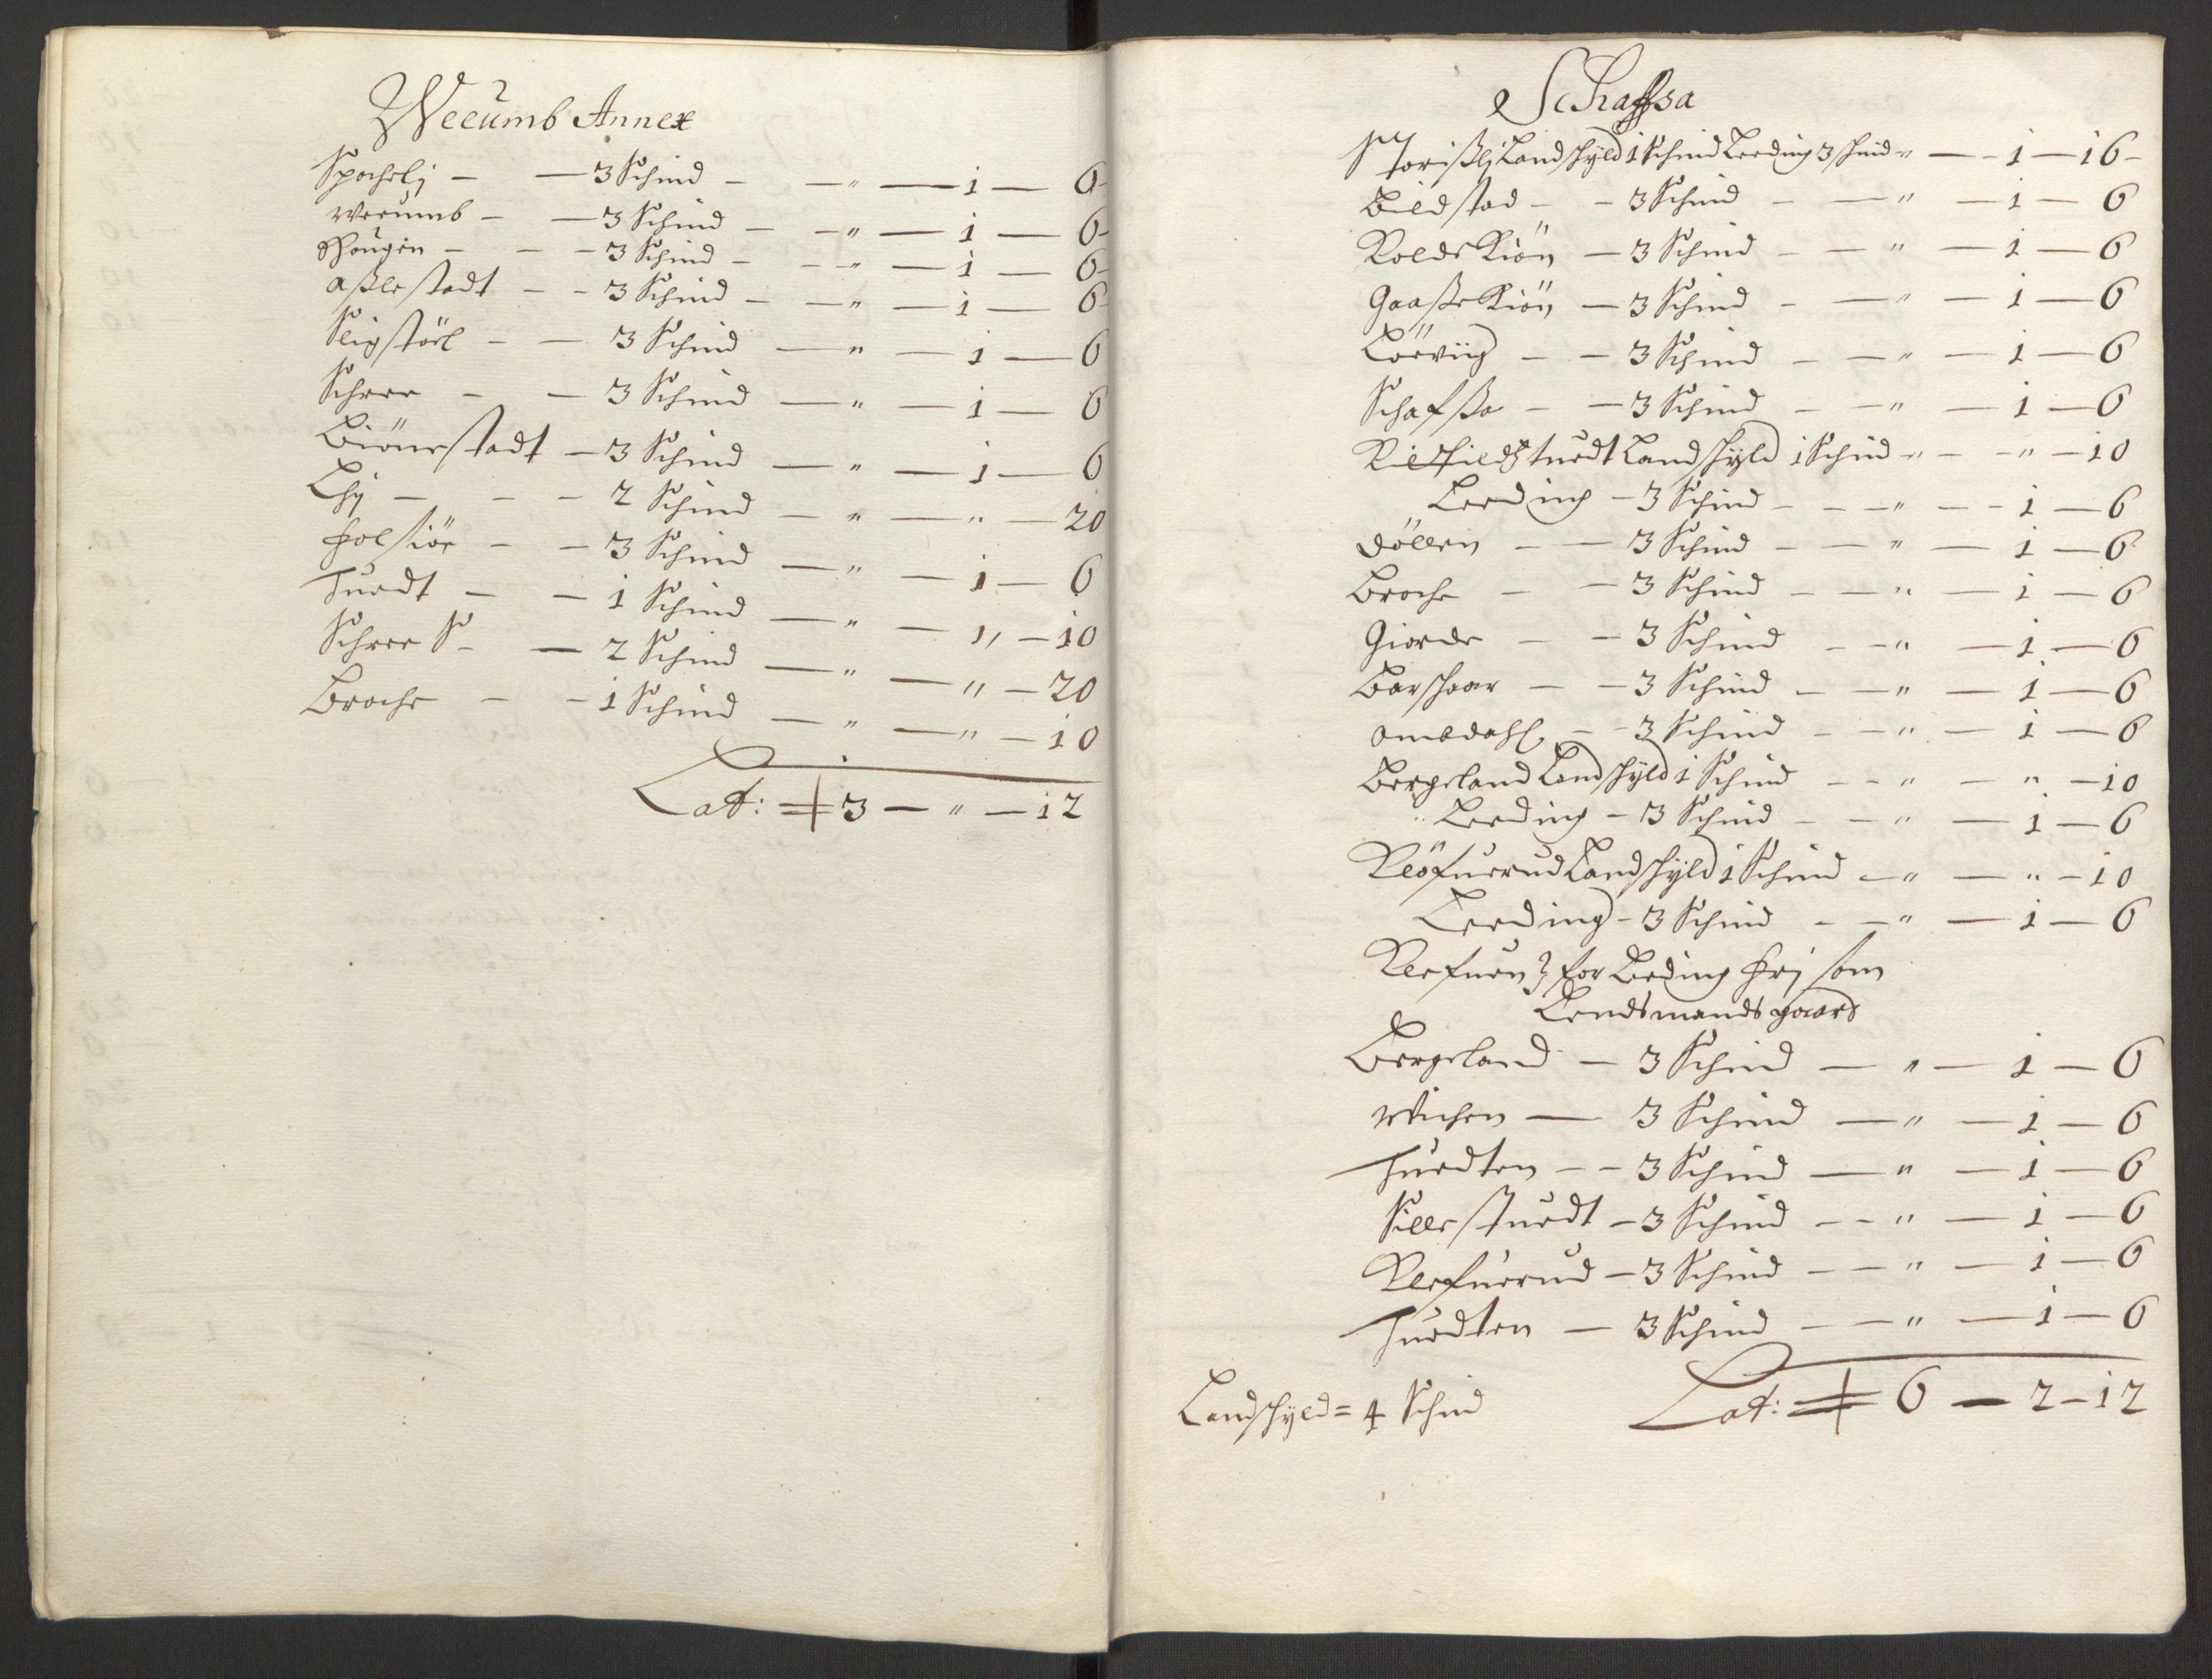 Weeumb Annex
Spochelj - - 3 Schind - - " - 1 - 6
Weeumb - - 3 Schind - - " - 1 - 6
Hougen - - - 3 Schind - - " - 1 - 6
aßlestadt - - 3 Schind - - " - 1 - 6
Sligstöel - - 3 Schind - " - 1 - 6
Schree - - 3 Schind - " - 1 - 6
Biönestadt - 3 Schind - " - 1 - 6
Lhj - - - 2 Schind - " - " - 20
Folsiöe - - 3 Schind - " - 1 - 6
Tuedt - - 1 Schind - " - " - 10
Schree S - - 2 Schind - " - " - 20
Broche - - 1 Schind - " - " - 10
Lat: ‡ 3 - " - 12
Schaffsa
Storißlj Landschyld 1 Schind Leeding 3 schind " - 1 - 16
Bildstad - - 3 Schind - - " - 1 - 6
Rolds Kiön - 3 Schind - - " - 1 - 6
Gaaße Kiön - 3 Schind - - " - 1 - 6
Löeviig - - 3 Schind - - " - 1 - 6
Schafßa - - 3 Schind - - " - 1 - 6
Landschyld 1 Schind " - " - 10
Leeding - 3 Schind - - " - - 1 - 6
Döllen - - 3 Schind - - " - 1 - 6
Broche - - 3 Schind - - " - 1 - 6
Giorde - - 3 Schind - - " - 1 - 6
Barschaar - - 3 Schind - - " - 1 - 6
omdahl - - 3 Schind - - " - 1 - 6
Bergeland Landschyld 1 Schind - - " - " - 10
Leeding - 3 Schind - - " - 1 - 6
Klöfuerud Landschyld 1 Schind - " - " - 10
Leeding - 3 Schind - - " - 1 - 6
for Leding frj som
Lendsmands gaard
Bergeland - 3 Schind - " - 1 - 6
Wichen - 3 Schind - " - 1 - 6
Tuedten - - 3 Schind - " - 1 - 6
Sillestuedt - 3 Schind - - " - 1 - 6
Klefuerud - 3 Schind - - " - 1 - 6
Tuedten - 3 Schind - - " - 1 - 6
Landschyld = 4 Schind Lat: ‡ 6 - 2 - 12